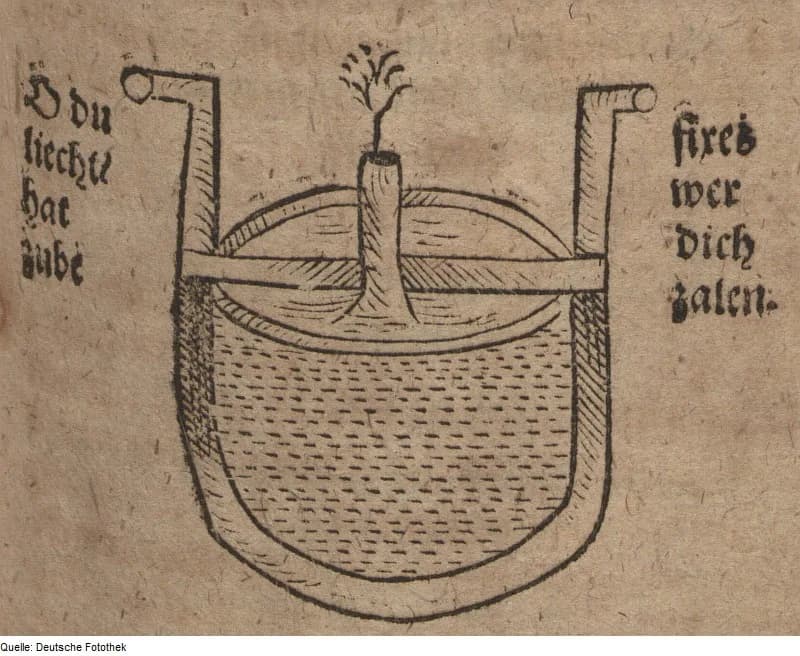 O du fixes
liecht wer
hat dich
zube zalen.
Quelle: Deutsche Fotothek